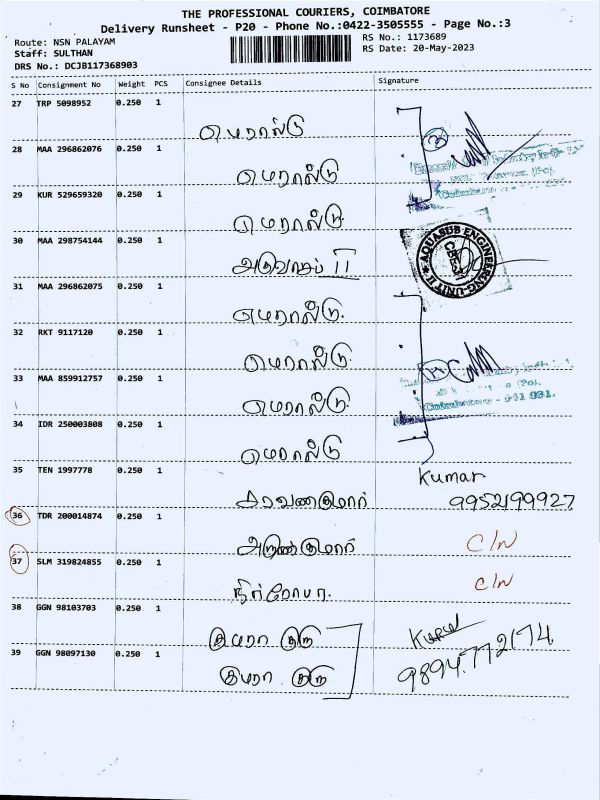 THE PROFESSIONAL COURIERS, COIMBATORE
Delivery Runsheet - P20 - Phone No.:0422-3505555 - Page No.:3
Route: NSN PALAYAM
RS No.: 1173689
Staff: SULTHAN
RS Date: 20-May-2023
DRS No.: DCJB117368903
S No Consignment No Weight PCS Consignee Details Signature
27 TRP 5098952 0.250 1
எமரால்டு
28 MAA 296862076 0.250 1
எமரால்டு
29 KUR 529659320 0.250 1
எமரால்டு
30 MAA 298754144 0.250 1
II
AQUASUB ENGINEERING-UNIT II
31 MAA 296862075 0.250 1
எமரால்டு
32 RKT 9117120 0.250 1
எமரால்டு
33 MAA 859912757 0.250 1
எமரால்டு
34 IDR 250003808 0.250 1
எமரால்டு
35 TEN 1997778 0.250 1 Kumar
சரவணகுமார் 9952199927
36 TDR 200014874 0.250 1
அருண்குமார் C/N
37 SLM 319824855 0.250 1
C/N
38 GGN 98103703 0.250 1
குமரா குரு
39 GGN 98097130 0.250 1 9894772174
குமரா குரு